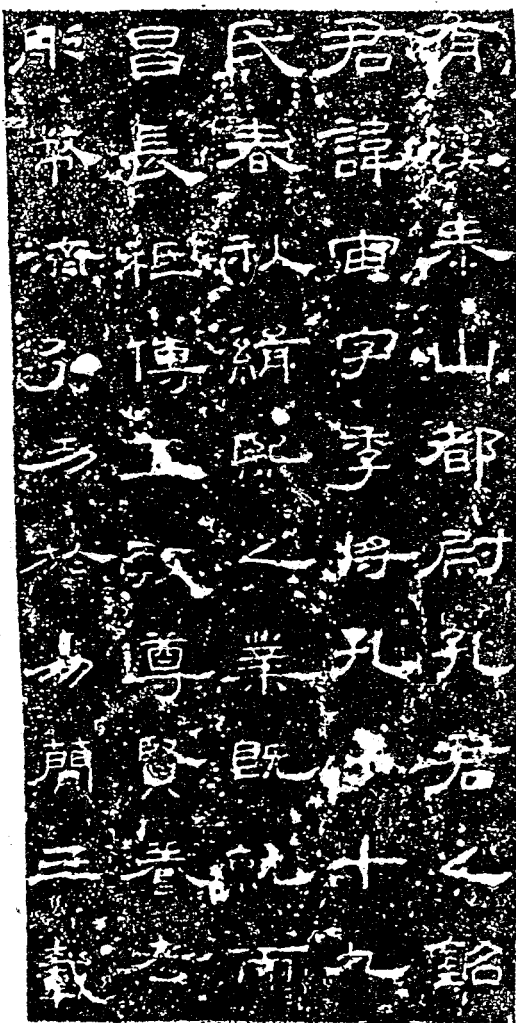 有漢泰山都尉孔君之銘
君諱宙字季將孔子十九
氏春秋緝熙之業既就而
昌長祗傅五教尊賢養老
彫幣濟弘功於易簡三載